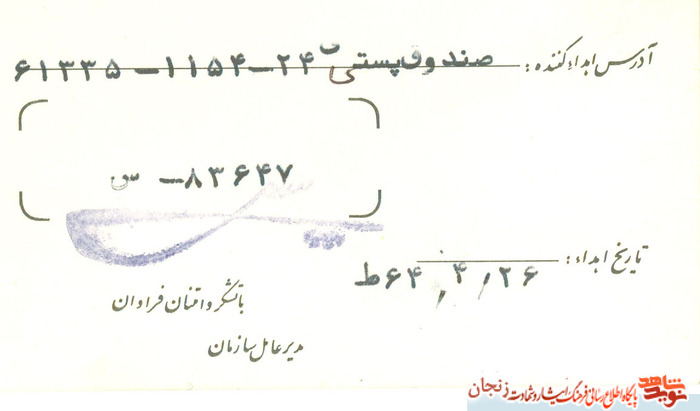 آدرس اهداء کننده: صندوق پستی ۲۴-۱۱۵۴-۶۱۳۳۵
۸۳۶۴۷-س
تاریخ اهداء: ۶۴/۴/۲۶ ط
با تشکر و امتنان فراوان
مدیر عامل سازمان
نوید شاهد پایگاه اطلاع رسانی فرهنگ ایثار و شهادت زنجان